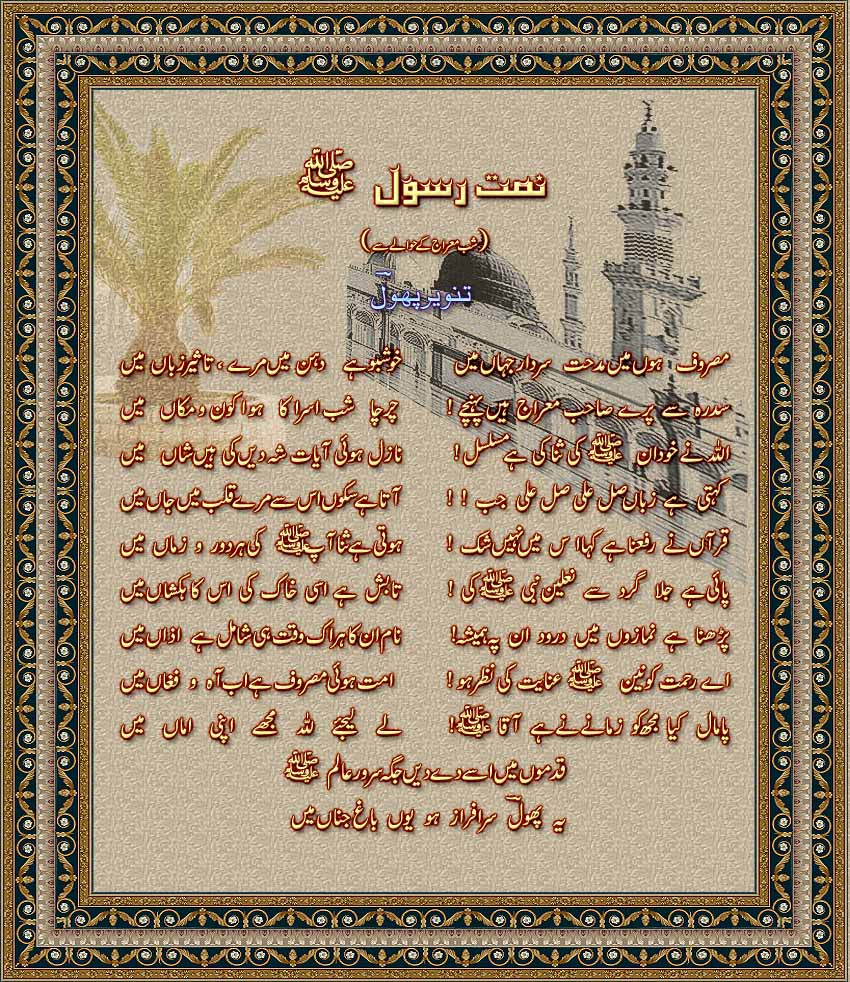 نعت رسول ﷺ
(شب معراج کے حوالے سے)
تنویر پھولؔ
مصروف ہوں میں مدحت سردار جہاں میں خوشبو ہے دہن میں مرے ، تاثیر زباں میں
سدرہ سے پرے صاحب معراج ہیں پہنچے ! چرچا شب اسرا کا ہوا کون و مکاں میں
اللہ نے خود ان ﷺ کی ثنا کی ہے مسلسل ! نازل ہوئی آیات شہ دیں کی ہیں شاں میں
کہتی ہے زباں صل علی صل علی جب ! ! آتا ہے سکوں اس سے مرے قلب میں جاں میں
قرآں نے رفعنا ہے کہا اس میں نہیں شک ! ہوتی ہے ثنا آپ ﷺ کی ہر دور و زماں میں
پائی ہے جلا گرد سے نعلین نبی ﷺ کی ! تابش ہے اسی خاک کی اس کاہکشاں میں
پڑھنا ہے نمازوں میں درود ان پہ ہمیشہ! نام ان کا ہر اک وقت ہی شامل ہے اذاں میں
اے رحمت کونین ﷺ عنایت کی نظر ہو ! امت ہوئی مصروف ہے اب آہ و فغاں میں
پامال کیا مجھ کو زمانے نے ہے آقا ﷺ! لے لیجئے للہ مجھے اپنی اماں میں
قدموں میں اسے دے دیں جگہ سرور عالم ﷺ
یہ پھولؔ سرافراز ہو یوں باغ جناں میں